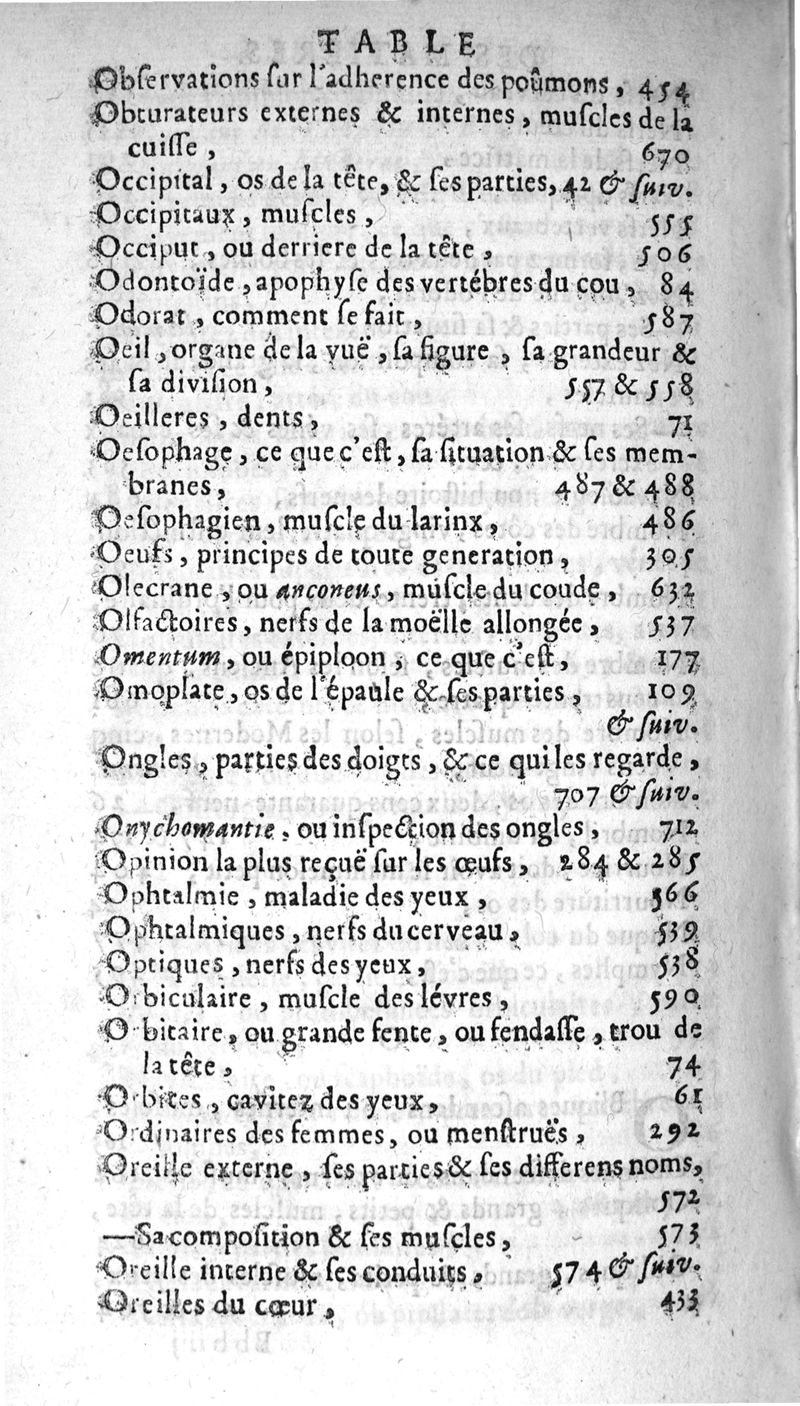 TABLE
Obſervations ſur l'adherence des poûmons, 454
Obturateurs externes & internes, muſcles de la
cuiſſe, 670
Occipital, os de la tête, & ſes parties, 42 & ſuiv.
Occipitaux, muſcles, 555
Occiput, ou derriere de la tête, 506
Odontoïde, apophyſe des vertébres du cou, 84
Odorat, comment ſe fait, 587
Oeil, organe de la vuë, ſa figure, ſa grandeur &
ſa diviſion, 557 & 558
Oeilleres, dents, 71
Oeſophage, ce que c'eſt, ſa ſituation & ſes mem-
branes, 487 & 488
Oeſophagien, muſcle du larinx, 486
Oeufs, principes de toute generation, 305
Olecrane, ou anconeus, muſcle du coude, 632
Olfactoires, nerfs de la moëlle allongée, 537
Omentum, ou épiploon, ce que c'eſt, 177
Omoplate, os de l'épaule & ſes parties, 109
& ſuiv.
Ongles, parties des doigts, & ce qui les regarde,
707 & ſuiv.
Onychomantie, ou inſpection des ongles, 712
Opinion la plus reçuë ſur les œufs, 284 & 285
Ophtalmie, maladie des yeux, 566
Ophtalmiques, nerfs du cerveau, 539
Optiques, nerfs des yeux, 538
Orbiculaire, muſcle des lévres, 590
Orbitaire, ou grande fente, ou fendaſſe, trou de
la tête, 74
Orbites, cavitez des yeux, 61
Ordinaires des femmes, ou menſtruës, 292
Oreille externe, ſes parties & ſes differens noms,
572
—Sa compoſition & ſes muſcles, 573
Oreille interne & ſes conduits, 574 & ſuiv.
Oreilles du cœur, 433